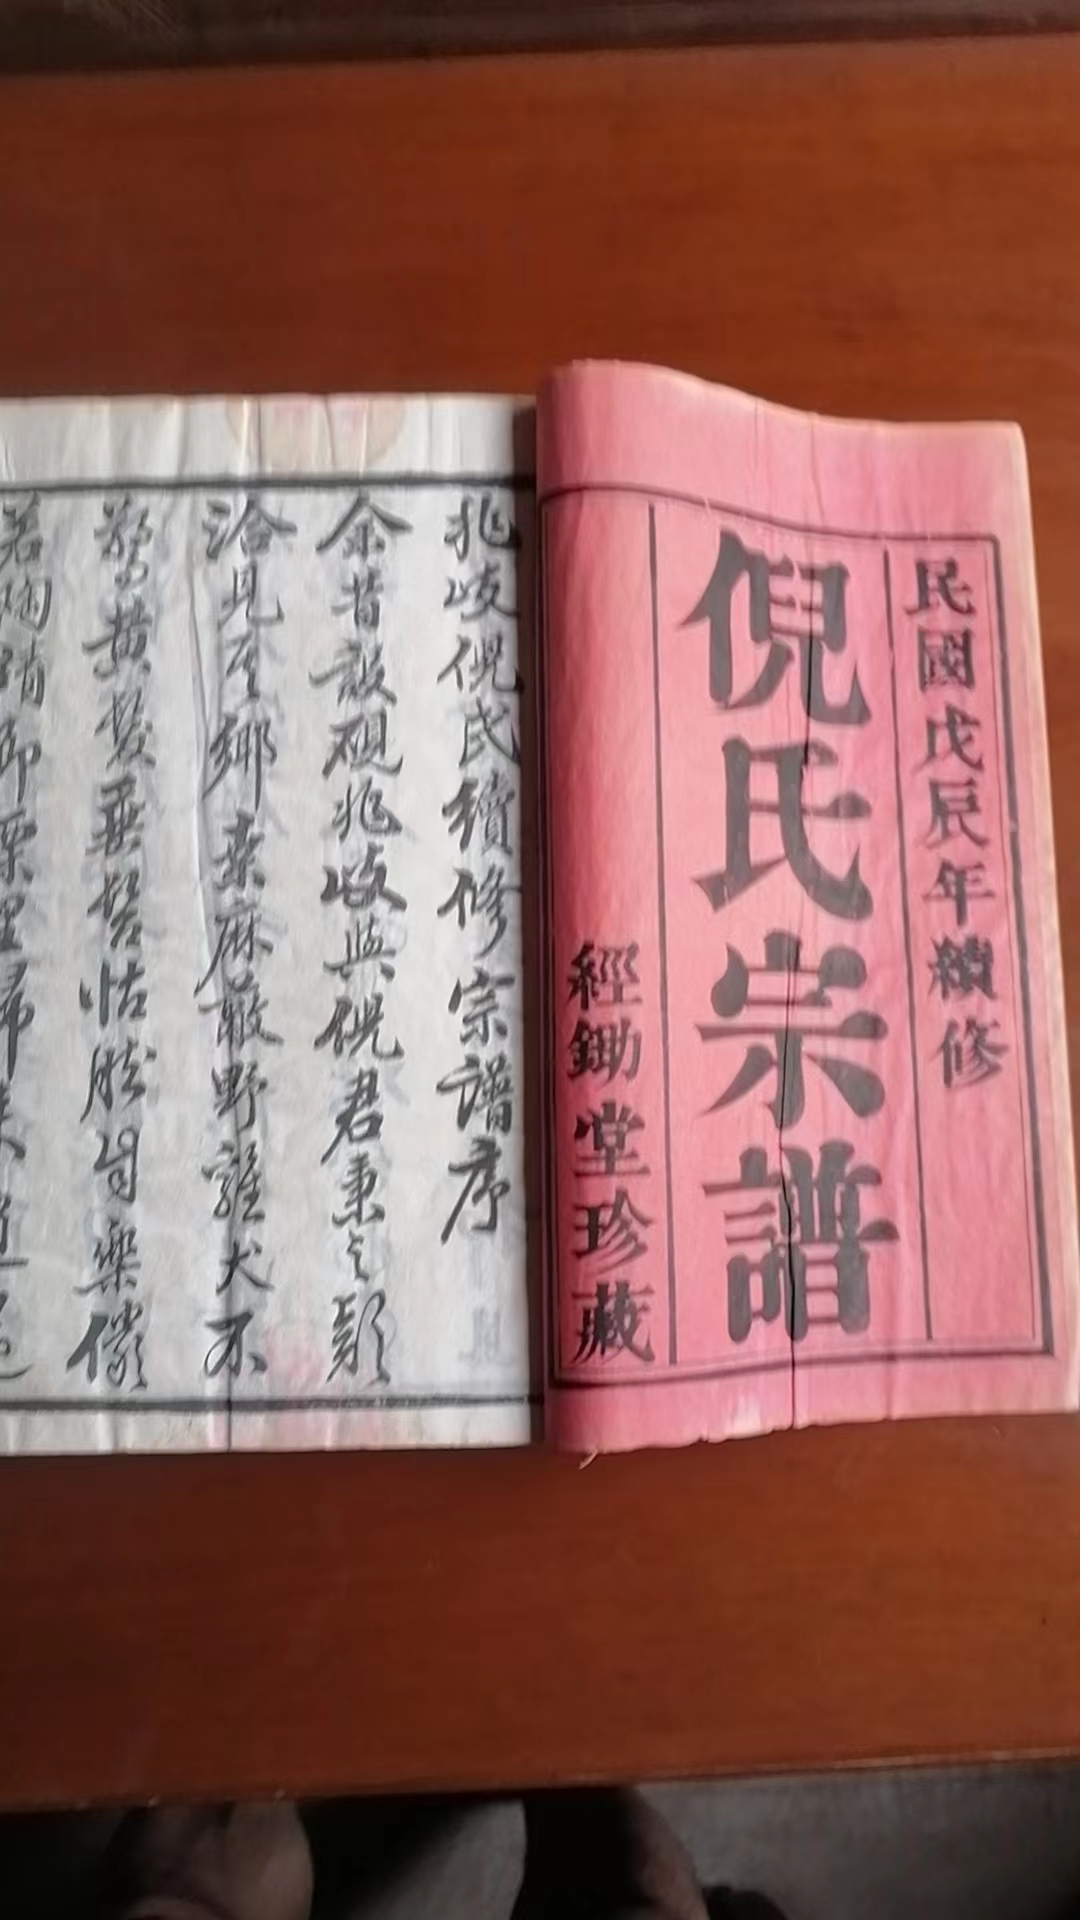 民國戊辰年續修
倪氏宗譜
經鋤堂珍藏
兆岐倪氏續修宗譜序
余昔設硯兆岐與倪君秉之頗
洽見其鄉桑麻蔽野雞犬不
驚黃髮垂髫怡然自樂儼
若陶 栗里歸